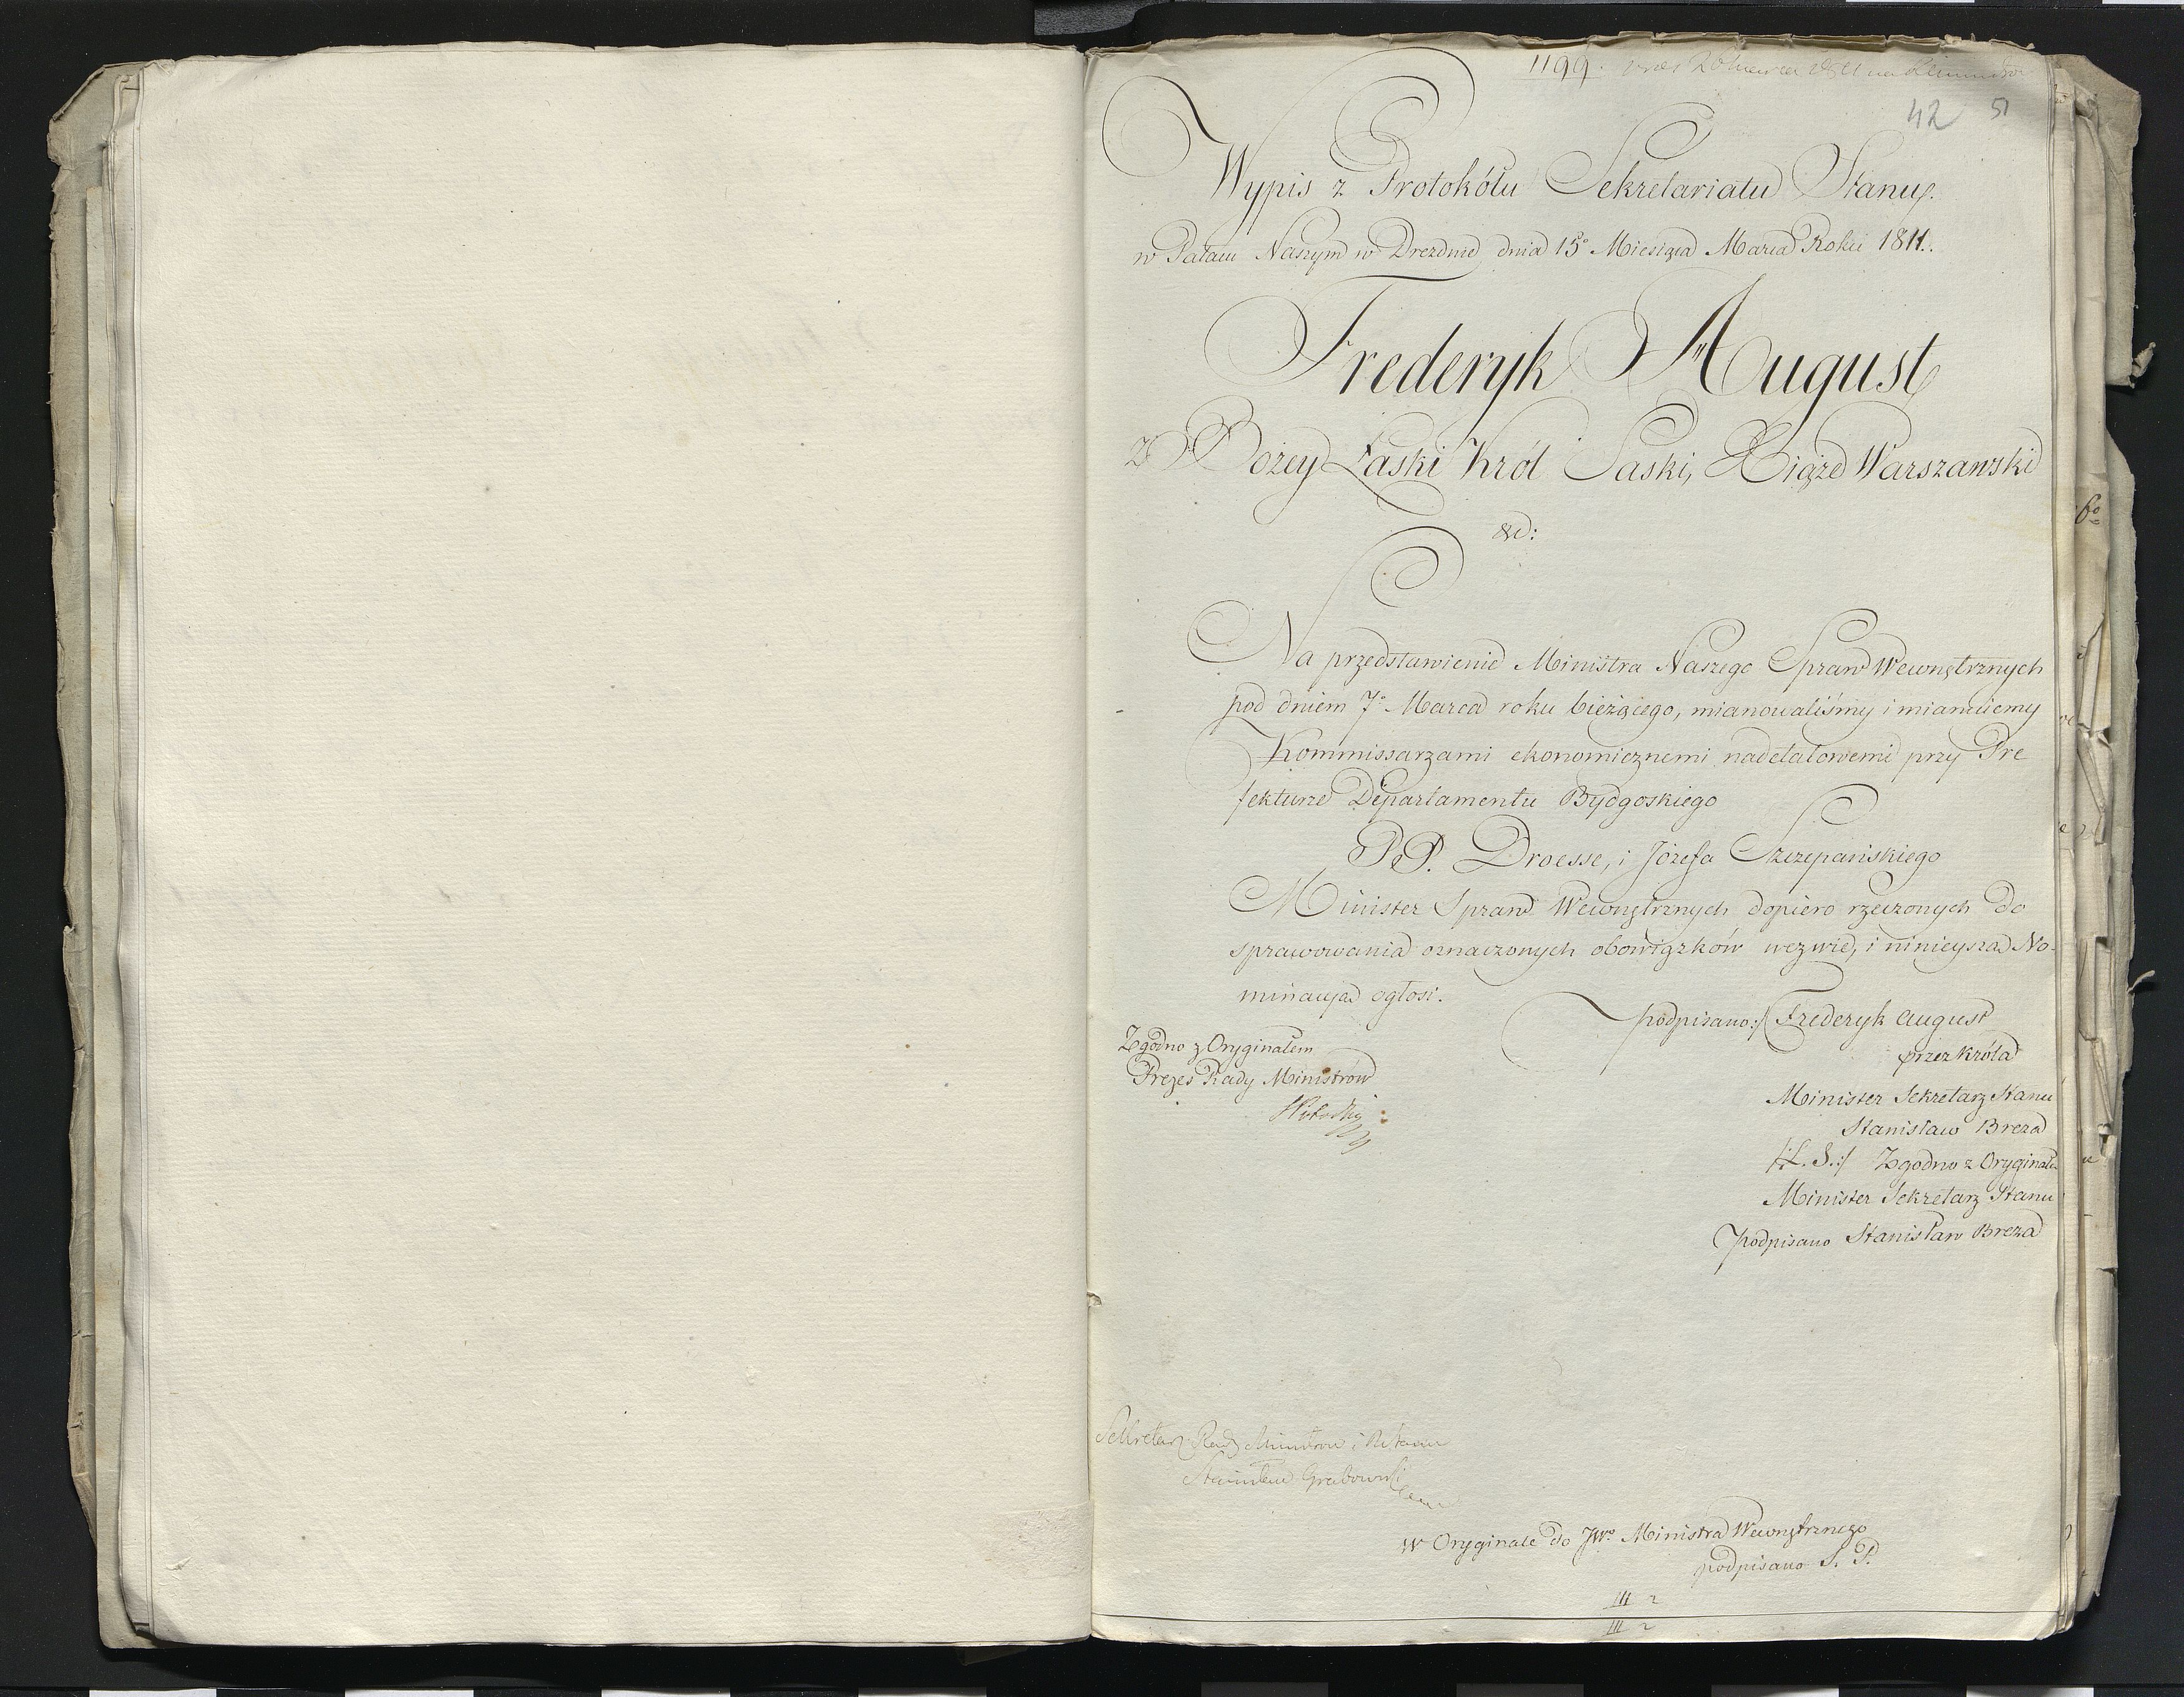 1199.
42 51
Wypis z Protokółu Sekretariatu Stanu.
w Pałacu Naszym w Dreznie dnia 15º Miesiąca Marca Roku 1811.
Frederyk August
Z Bożey Łaski Król Saski, Xiąże Warszawski
&c:
Na przedstawienie Ministra Naszego Spraw Wewnętrznych
pod dniem 7º Marca roku bieżącego, mianowaliśmy i mianuiemy
Kommissarzami ekonomicznemi nadetatowemi przy Pre
fekturze Departamentu Bydgoskiego
PP. Droesse, i Józefa Szczepańskiego
Minister Spraw Wewnętrznych dopiero rzeczonych do
sprawowania oznaczonych obowiązków wezwie, i ninieysza No-
minacyja ogłosi.
podpisano:/ Frederyk August
przez Króla
Minister Sekretarz Stanu
Stanisław Breza
/:L. S.:/ Zgodno z Oryginałem
Minister Sekretarz Stanu
Podpisano Stanisław Breza
Zgodno z Oryginałem
Prezes Rady Ministrów
Sekretarz Rady Ministrów i R Stanu
Stanisław Grabowski
W Oryginale do JWº Ministra Wewnętrznego
podpisano S. P.
III 2
III 2